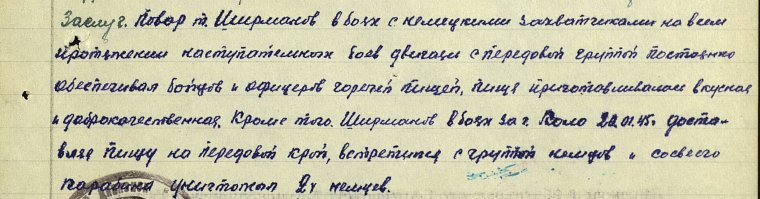 Заслуг. Повар т. Ширманов в боях с немецкими захватчиками на всем
протяжении наступательных боев двигаясь с передовой группой постоянно
обеспечивал бойцов и офицеров горячей пищей, пища приготавливалась вкусная
и доброкачественная. Кроме того. Ширманов в боях за г. Коло 22.01.45г. доста-
вляя пищу на передовой край, встретился с группой немцев и со своего
карабина уничтожил 2х немцев.